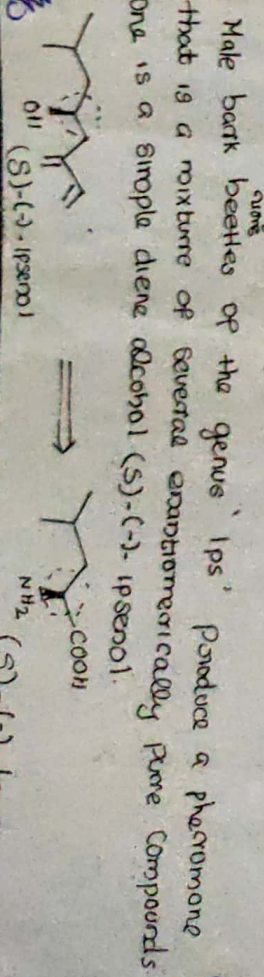 Male bark beetles of the genus 'Ips' Produce a pheromone
that is a mixture of several enantiomerically pure compounds.
One is a simple diene alcohol (S)-(-)-Ipsenol.
COOH
OH
NH2
(S)-(-)-Ipsenol